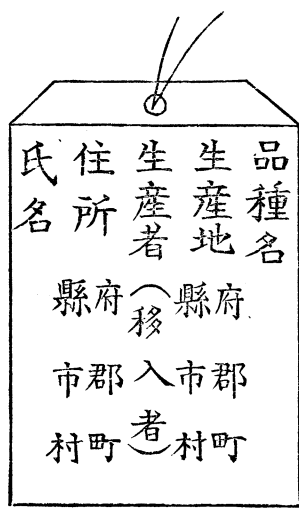 品種名
生産地 府縣 郡市 町村
生産者（移入者）
住所 府縣 郡市 町村
氏名